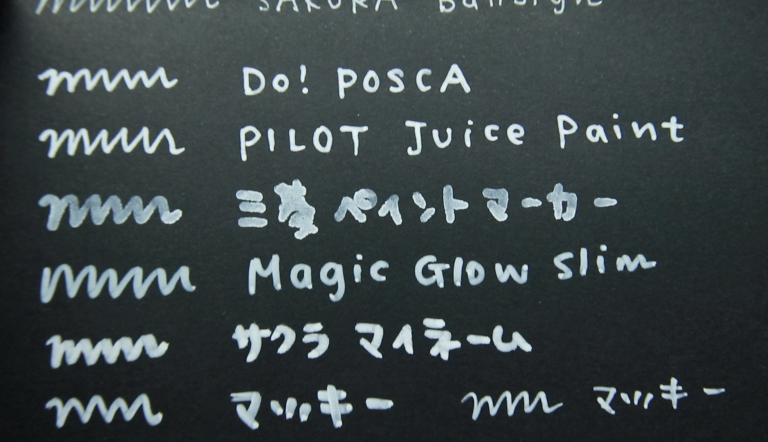 SAKURA Ballsign
Do! POSCA
PILOT Juice Paint
三菱 ペイントマーカー
Magic Glow Slim
サクラ マイネーム
マッキー マッキー